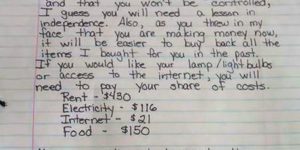 and that you won't be controlled,
I guess you will need a lesson in
independence. Also, as you threw in my
face that you are making money now,
it will be easier to buy back all the
items I bought for you in the past.
If you would like your lamp/lightbulbs
or access to the internet, you will
need to pay your share of costs.
Rent - $430
Electricity - $116
Internet - $21
Food - $150